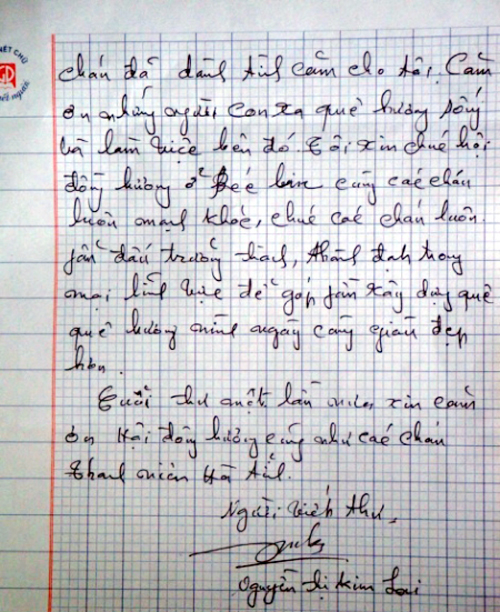 NÉT CHỮ
nết người
cháu đã dành tình cảm cho tôi. Cảm
ơn những người con xa quê hương sống
và làm việc bên đó. Tôi xin chúc hội
đồng hương ở Béc lin cùng các cháu
luôn mạnh khỏe, chúc các cháu luôn
phấn đấu trưởng thành, thành đạt trong
mọi lĩnh vực để góp phần xây dựng quê
quê hương mình ngày càng giàu đẹp
hơn.
Cuối thư một lần nữa, xin cảm
ơn Hội đồng hương cũng như các cháu
thanh niên Hà Tĩnh.
Người viết thư,
Nguyễn Thị Kim Loai